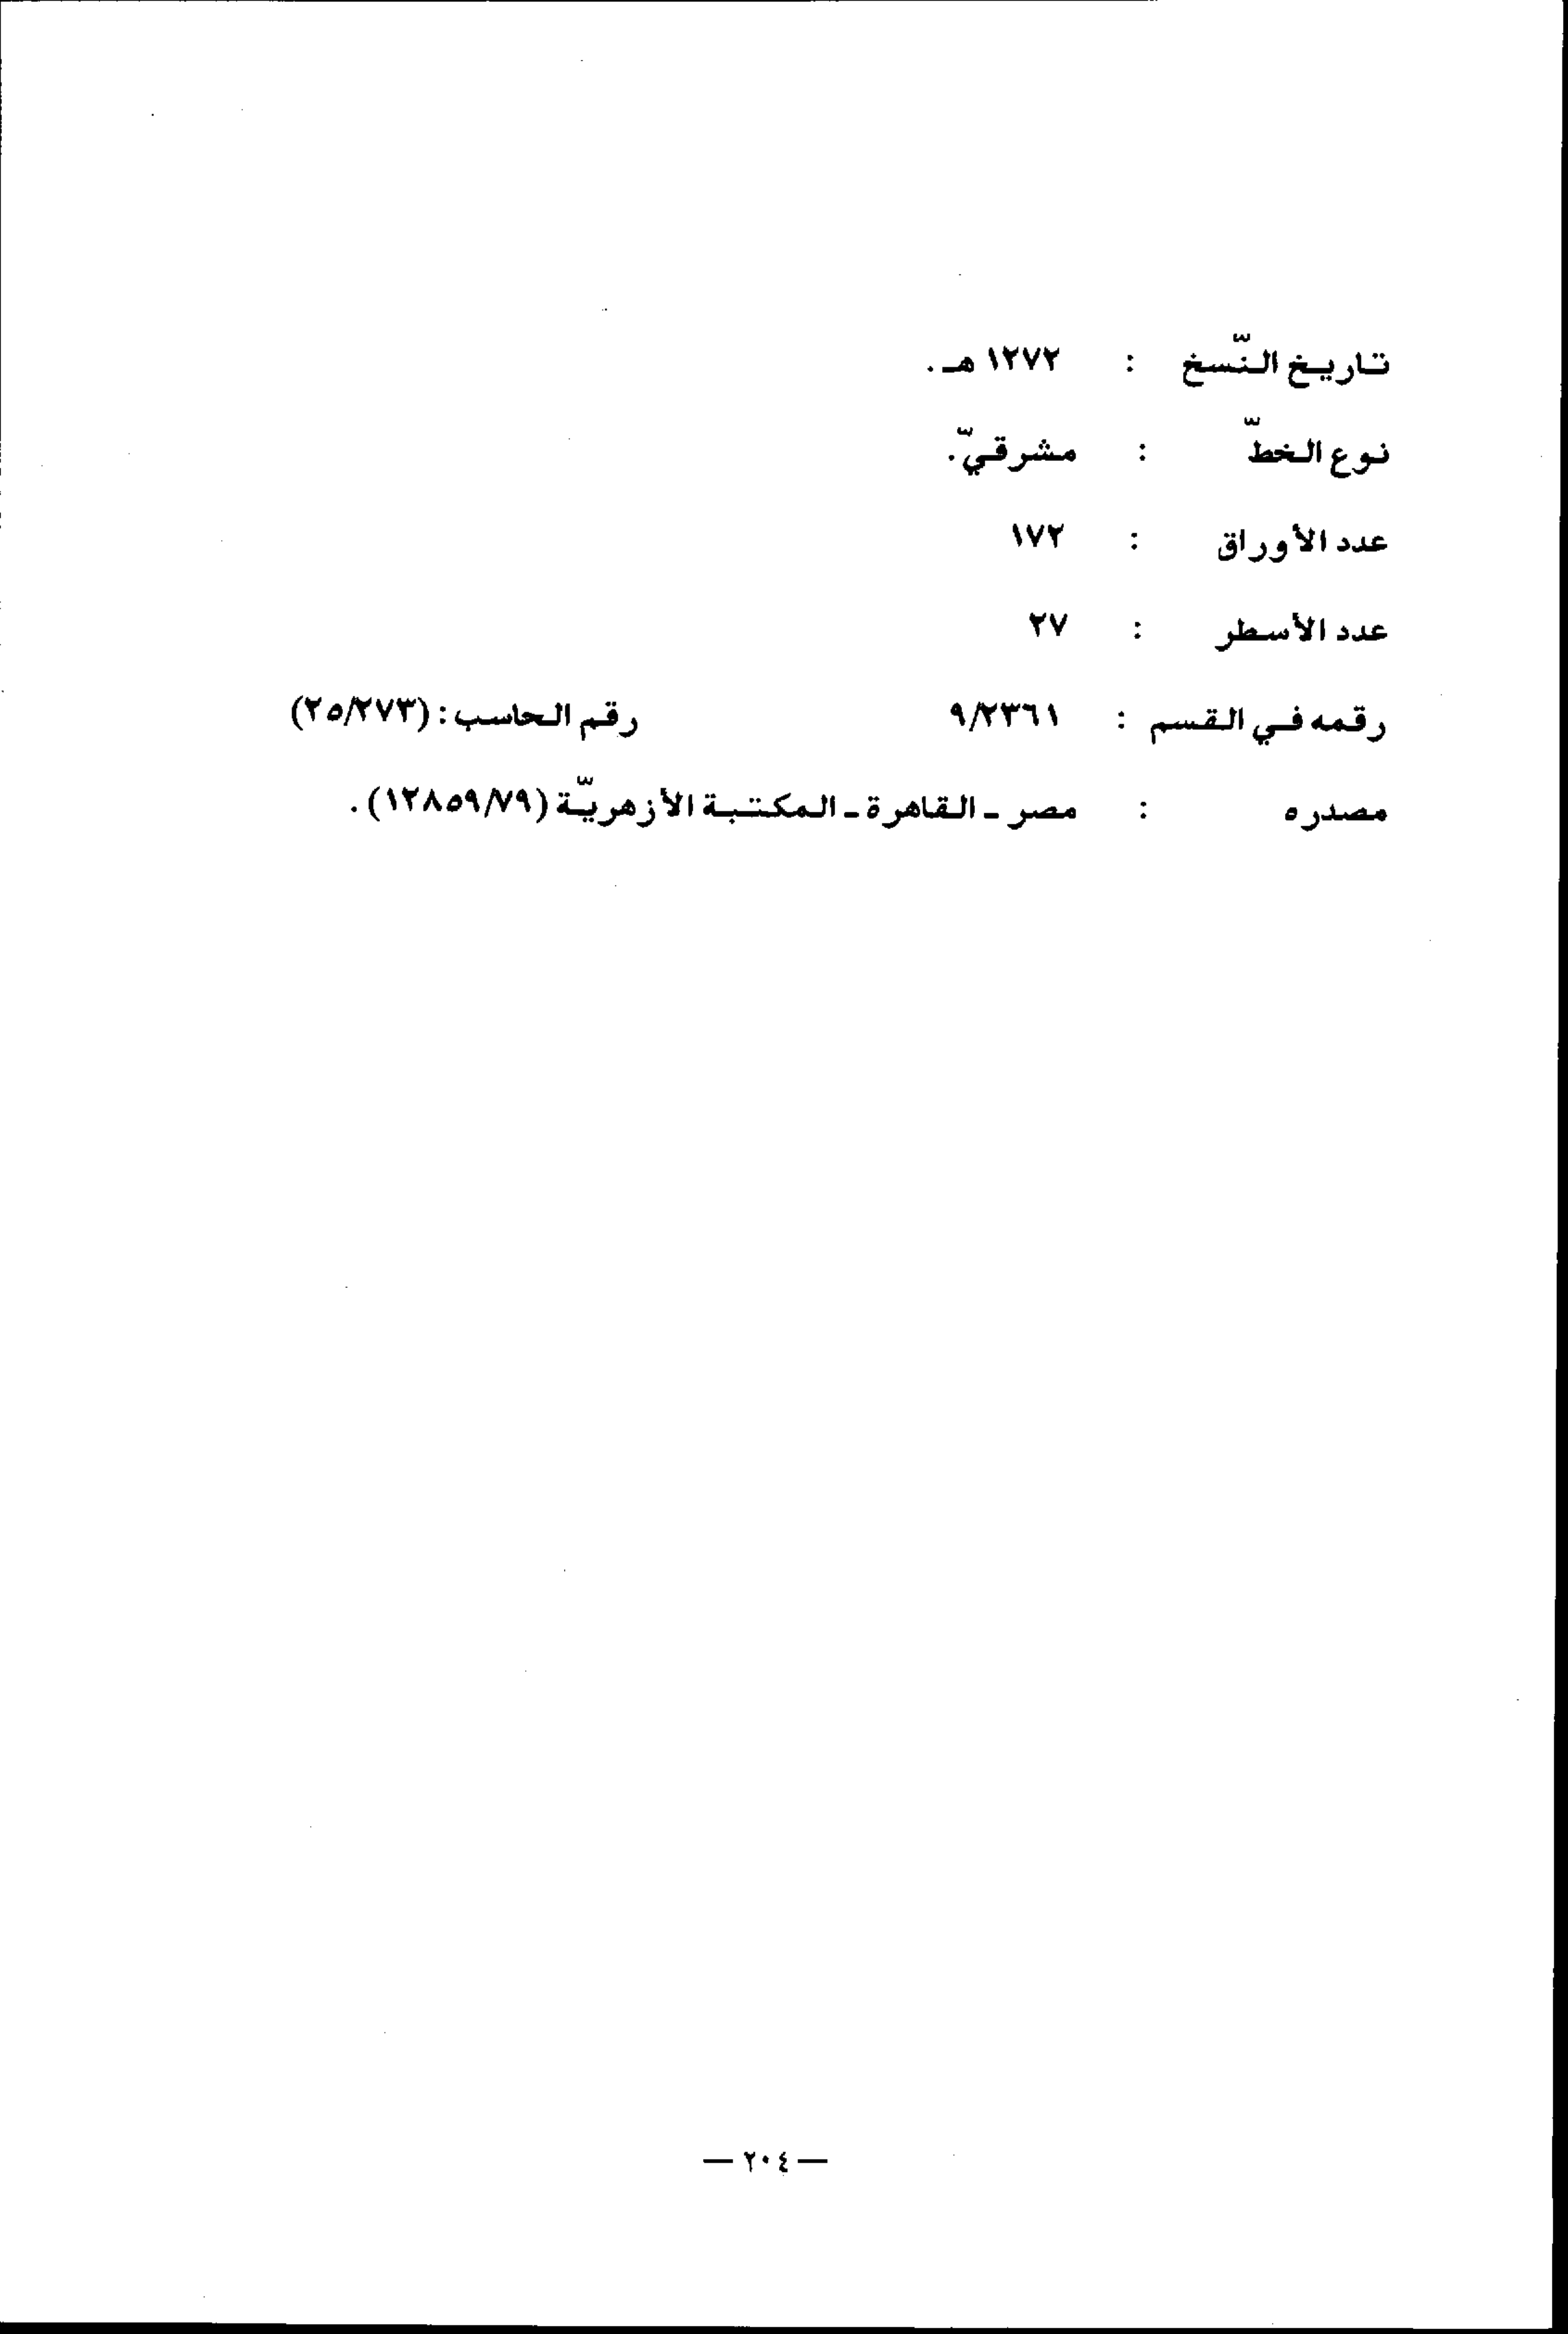 تاريخ النّسخ : ١٢٧٢ هـ .
نوع الخطّ : مشرقيّ.
عدد الأوراق : ١٧٢
عدد الأسطر : ٢٧
رقمه في القسم : ٩/٢٣٦١ رقم الحاسب : (٢٥/٢٧٣)
مصدره : مصر ـ القاهرة ـ المكتبة الأزهريّة (١٢٨٥٩/٧٩) .
— ٢٠٤ —